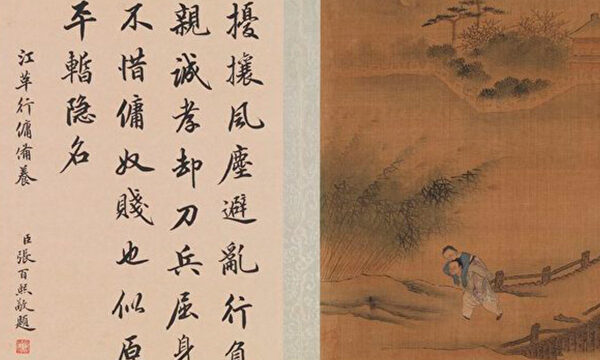 擾攘風塵避亂行負
親誠孝却刀兵屈身
不惜傭奴賤也似原
平暫隱名
江革行傭備養
臣張百熙敬題